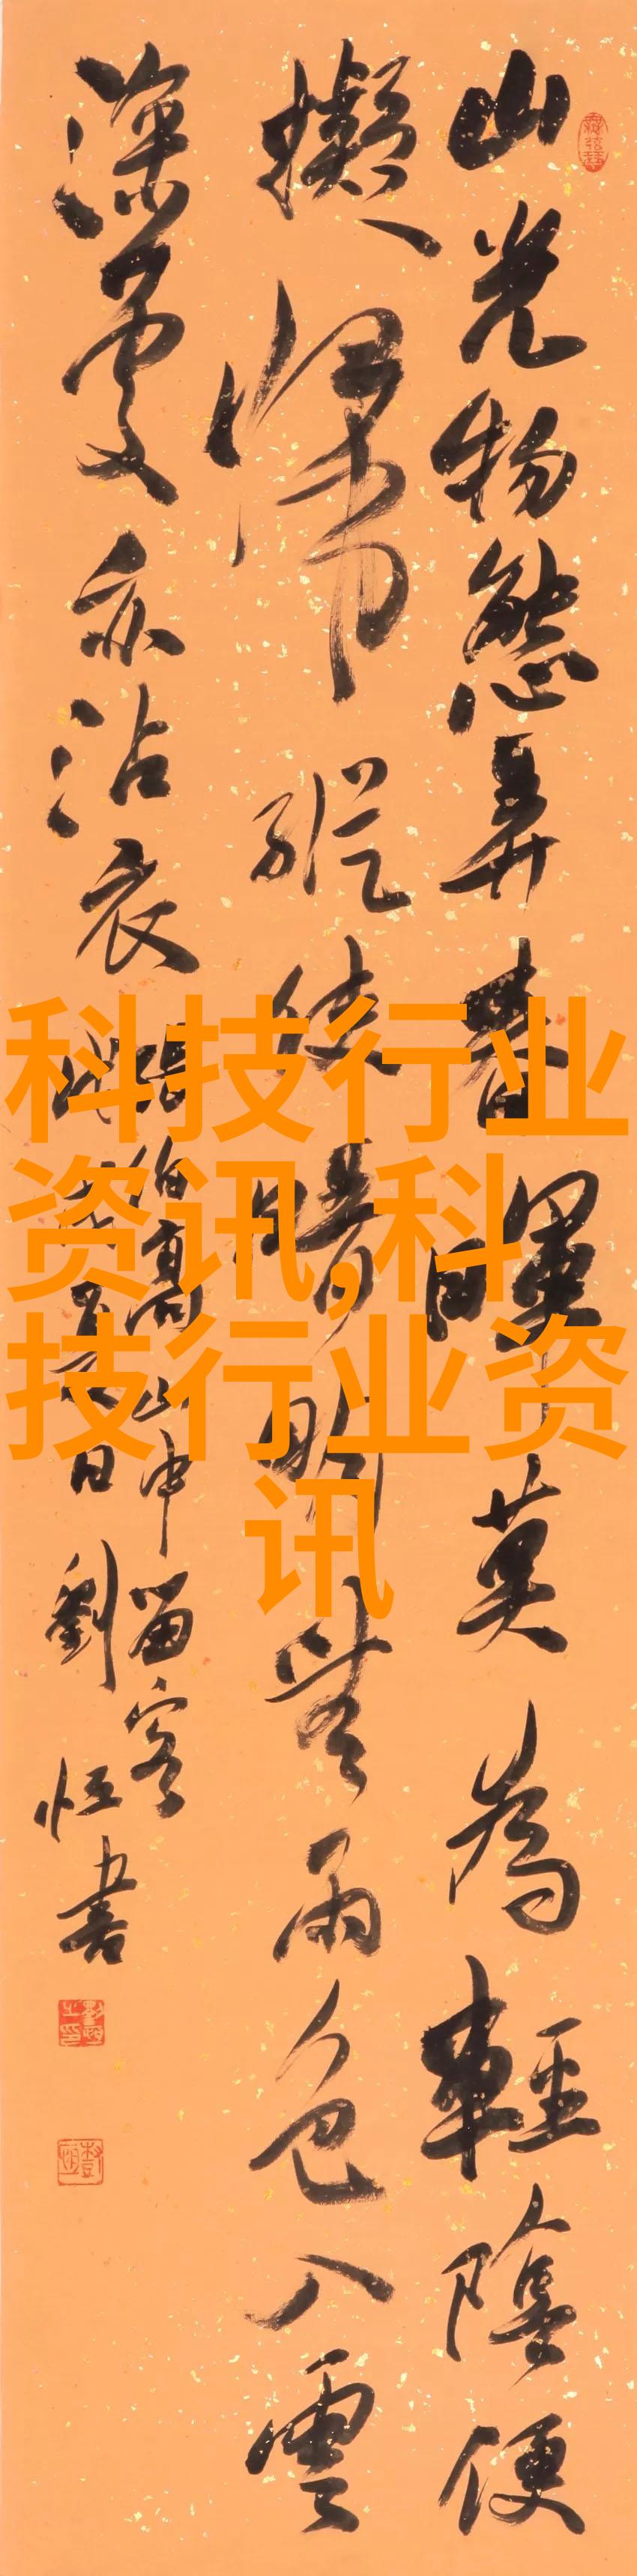 山光物態弄春暉莫為輕陰便
擬歸縱使晴明無雨色入雲
深處亦沾衣
張伯高山中留客
劉恒書
科技行业
资讯,科
技行业资
讯